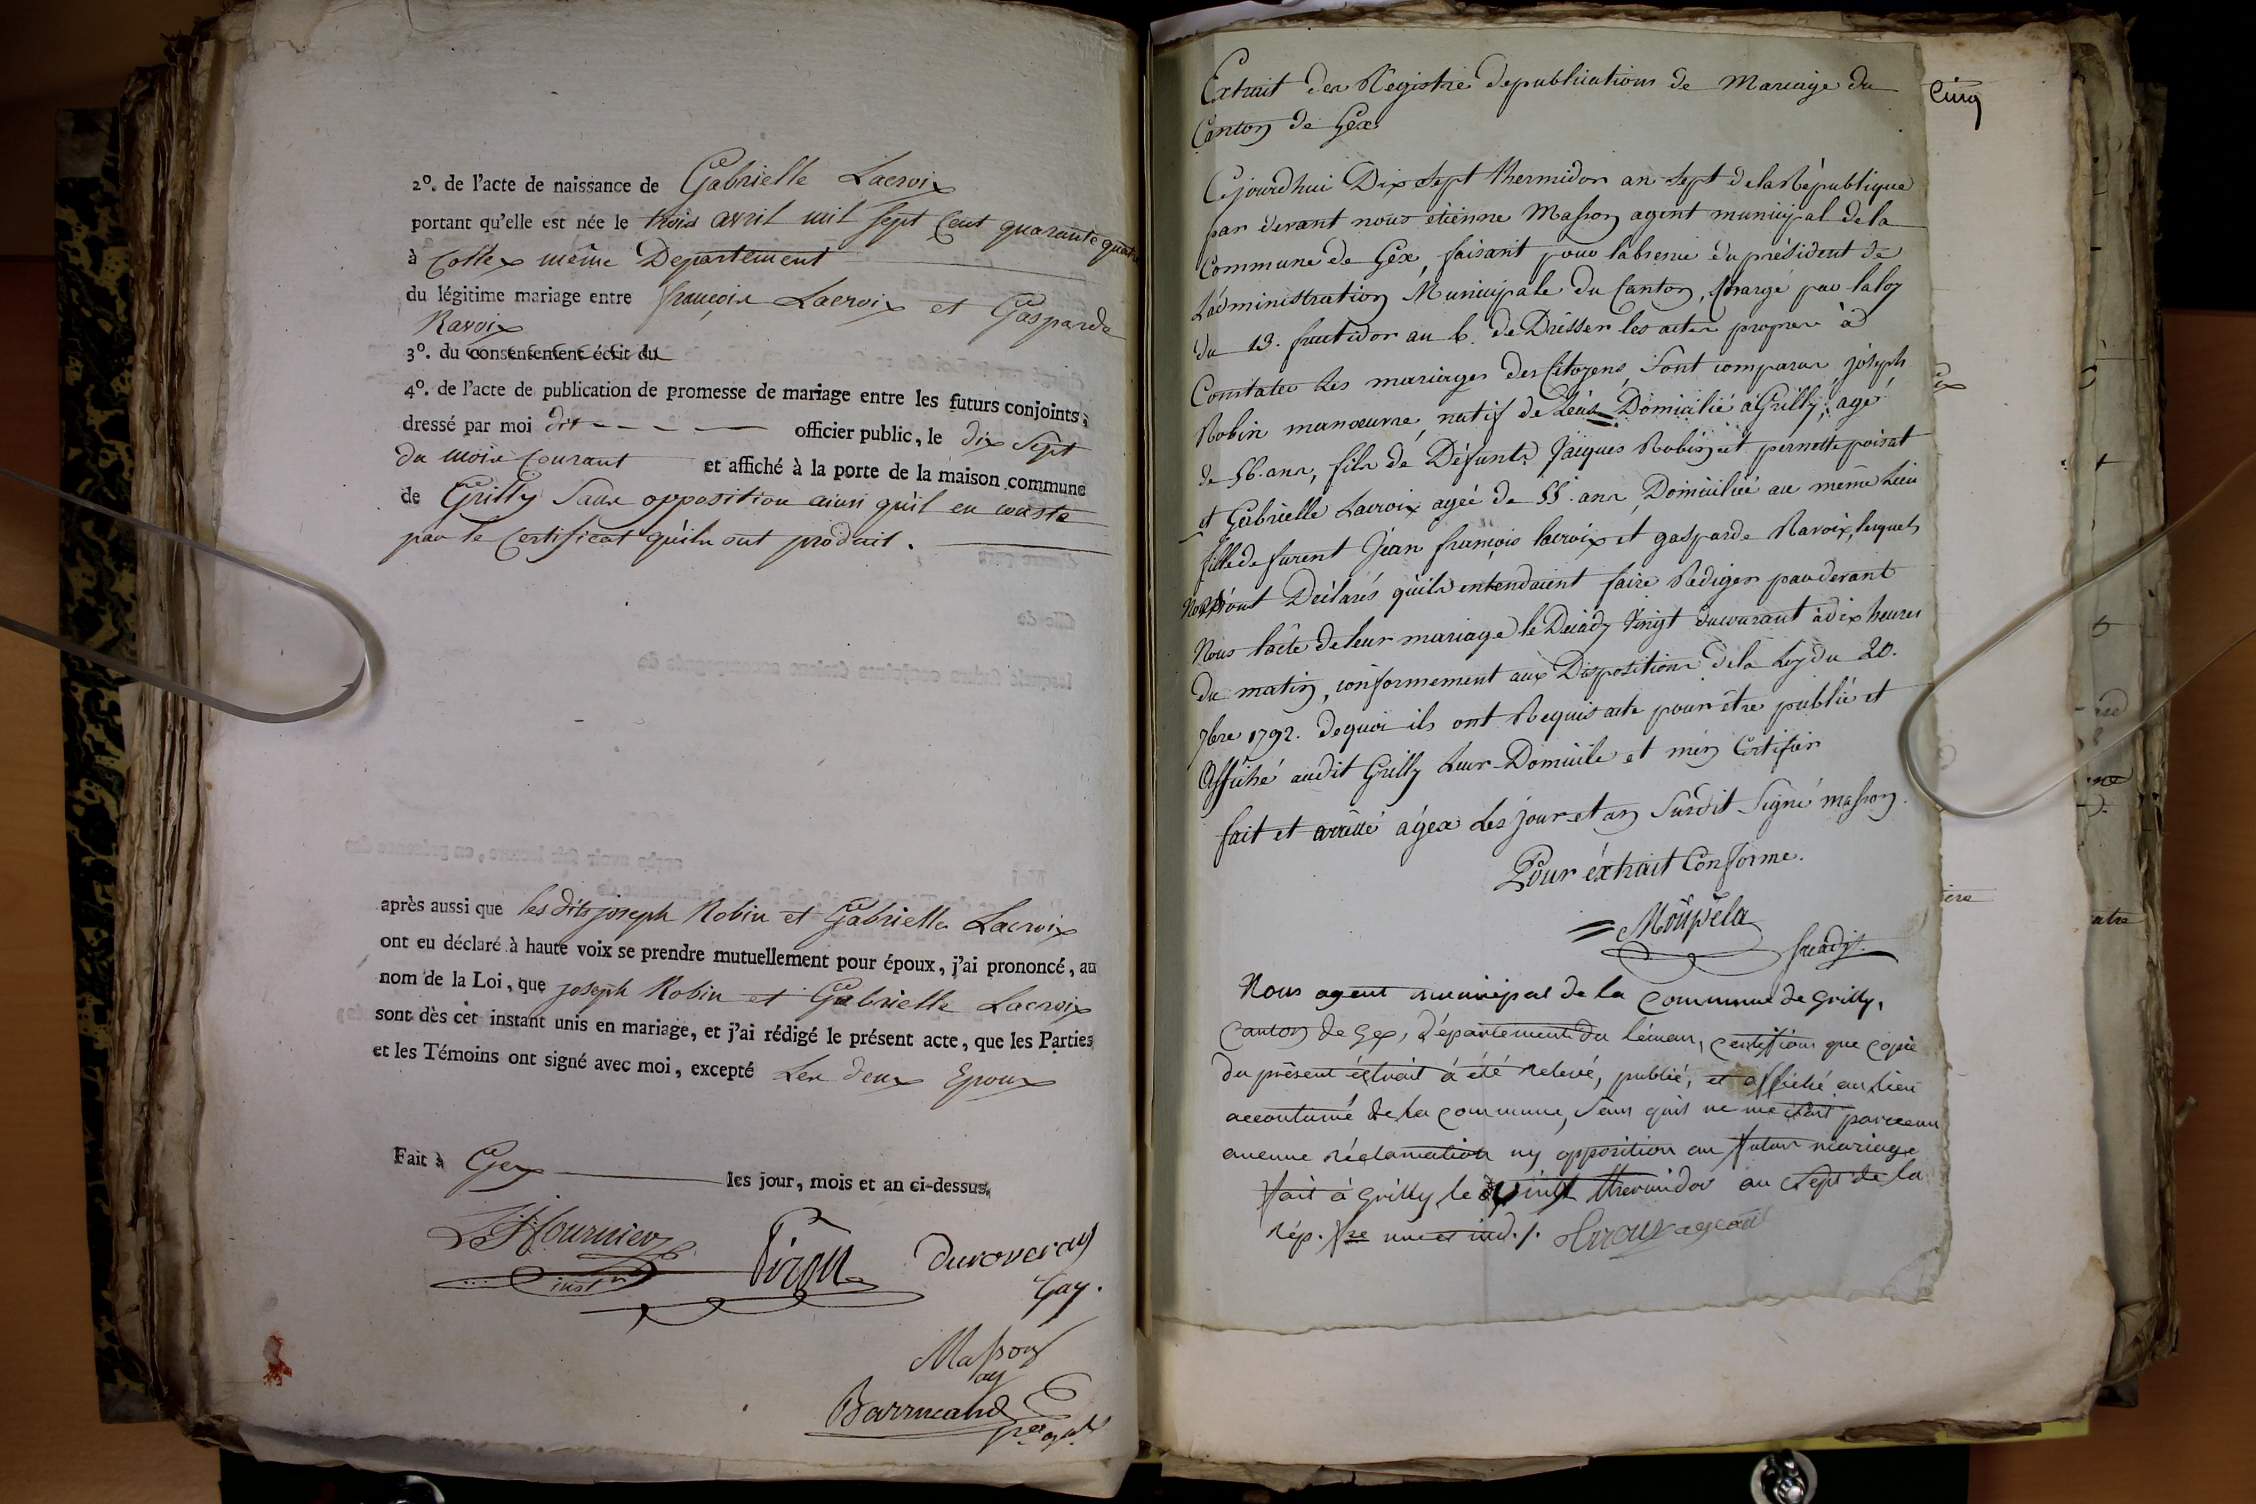 2°. de l'acte de naissance de Gabrielle Lacroix
portant qu'elle est née le trois avril mil sept Cent quarante quatre
à Collex même Departement
du légitime mariage entre françois Lacroix et Gasparde
Ravoix
3°. du consentement écrit du
4°. de l'acte de publication de promesse de mariage entre les futurs conjoints,
dressé par moi dit officier public, le dix sept
du mois Courant et affiché à la porte de la maison commune
de Grilly Sans opposition ainsi qu'il en conste
par le Certificat qu'ils ont produit.
après aussi que les dits joseph Robin et Gabrielle Lacroix
ont eu déclaré à haute voix se prendre mutuellement pour époux, j'ai prononcé, au
nom de la Loi, que joseph Robin et Gabrielle Lacroix
sont dès cet instant unis en mariage, et j'ai rédigé le présent acte, que les Parties
et les Témoins ont signé avec moi, excepté Les deux Epoux
Fait à Gex les jour, mois et an ci-dessus.
Fournier
inst.r
Piron
Duroveray
Gay.
Masson
ag
Barrucand
Extrait des Registre de publications de Mariage du
Canton de Gex
Cejourdhui Dix Sept thermidor an Sept de la République
par devant nous étienne Masson agent municipal de la
Commune de Gex, faisant pour labsence du président de
L'administration Municipale du Canton, Chargé par la loy
du 13. fructidor an 6. de Dresser les actes propres à
Constater Les mariages des Citoyens Sont comparus joseph
Robin manoeuvre, natif de Domicilié à Grilly, agé
de 56. ans, fils de Défunts Jacques Robin et pernette poisat
et Gabrielle Lacroix agée de 55. ans Domiciliée au même Lieu
fille de furent Jean françois lacroix et gasparde Ravoix, lesquels
Nous ont Déclarés qu'ils entendaient faire Rediger par devant
Nous l'acte de leur mariage le Décady Vingt du courant à dix heures
du matin, conformement aux Dispositions de la Loy du 20.
7bre 1792. de quoi ils ont Requis acte pour être publié et
Affiché audit Grilly Leur Domicile et m'en Certifier
fait et arrêtté à gex Les jour et an Susdit Signé masson.
Pour éxtrait Conforme.
Nous agent municipal de la commune de Grilly,
Canton de Gex, Département du Léman, certifions que copie
du présent éxtrait à été relevé, publié, et affiché au lieu
accoutumé de la commune, sans qu'il ne me soit parvenu
aucune réclamation ny opposition au futur mariage
fait à Grilly le vingt thermidor an sept de la
rép. fse une et ind./. agent
Cinq